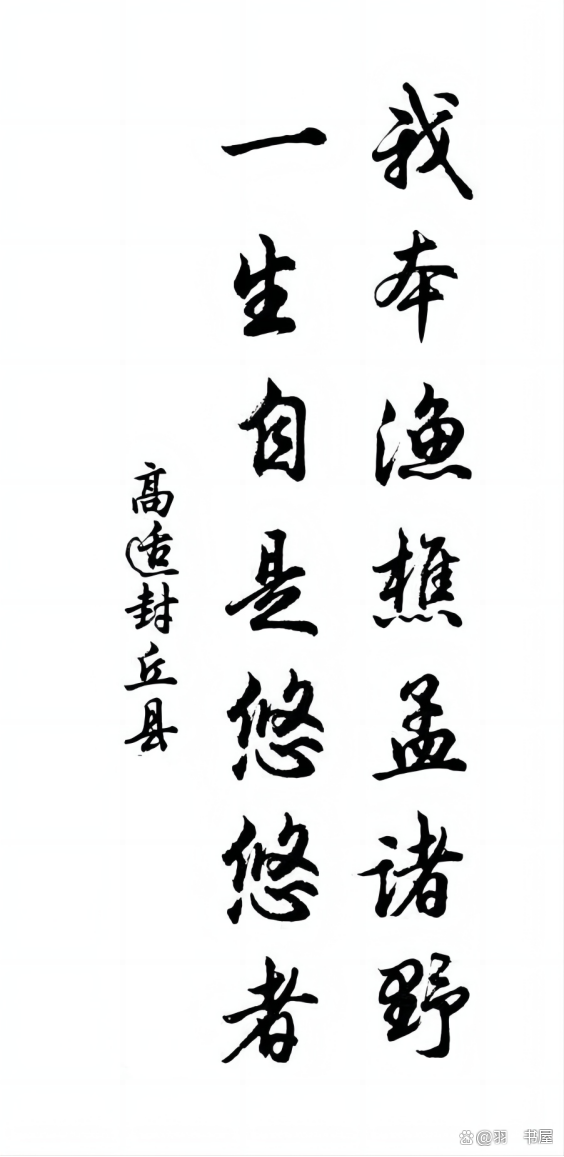 我本渔樵孟诸野
一生自是悠悠者
高适封丘县
@羽 书屋